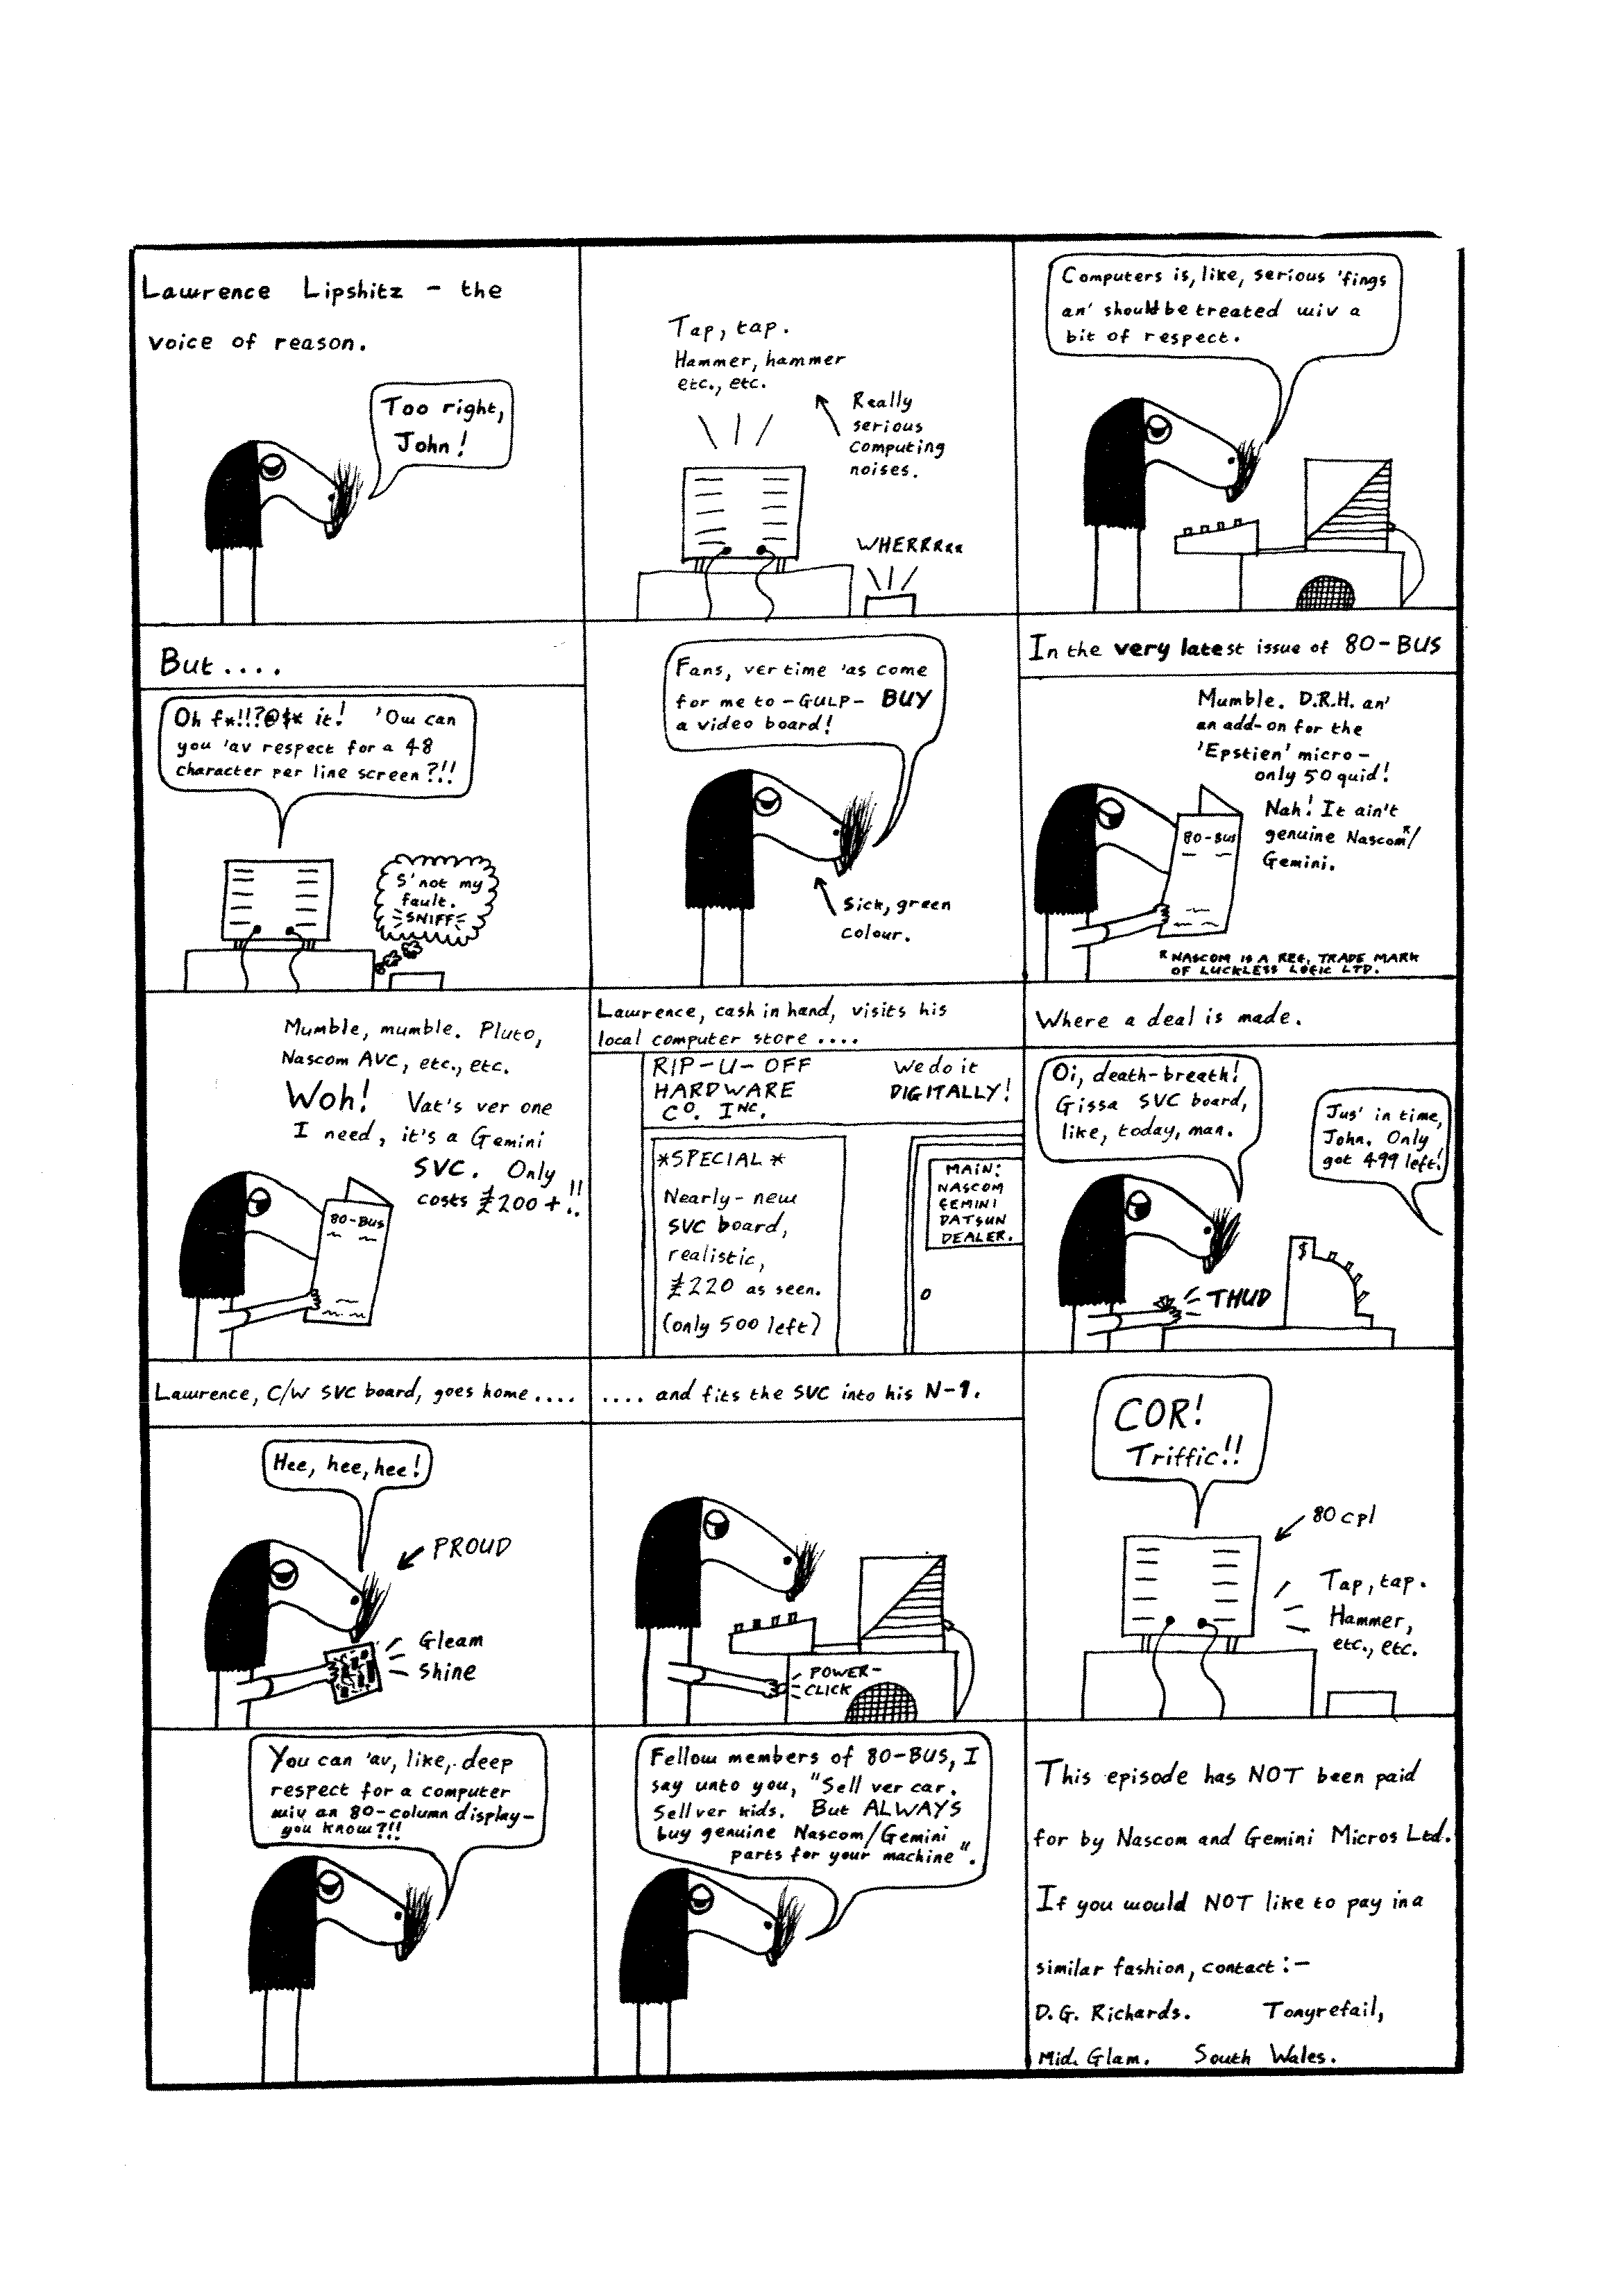 Lawrence Lipshitz - the
voice of reason.
Too right,
John!
Tap, tap.
Hammer, hammer
etc., etc.
Really
serious
computing
noises.
WHERRRRR
Computers is, like, serious 'fings
an' should be treated wiv a
bit of respect.
But....
Oh f*!!?@$* it! 'Ow can
you 'av respect for a 48
character per line screen?!!
S'not my
fault.
SNIFF
Fans, ver time 'as come
for me to -GULP- BUY
a video board!
Sick, green
colour.
In the very latest issue of 80-BUS
Mumble. D.R.H. an'
an add-on for the
'Epstien' micro -
only 50 quid!
Nah! It ain't
genuine Nascom*/
Gemini.
80-Bus
* NASCOM IS A REG. TRADE MARK
OF LUCKLESS LOGIC LTD.
Mumble, mumble. Pluto,
Nascom AVC, etc., etc.
Woh! Vat's ver one
I need, it's a Gemini
SVC. Only
costs £200+!!
80-Bus
Lawrence, cash in hand, visits his
local computer store....
RIP-U-OFF
HARDWARE
Co. INC.
We do it
DIGITALLY!
*SPECIAL*
Nearly-new
SVC board,
realistic,
£220 as seen.
(only 500 left)
MAIN:
NASCOM
GEMINI
DATSUN
DEALER.
Where a deal is made.
Oi, death-breath!
Gissa SVC board,
like, today, man.
Jus' in time,
John. Only
got 499 left!
$
THUD
Lawrence, C/W SVC board, goes home....
Hee, hee, hee!
PROUD
Gleam
Shine
.... and fits the SVC into his N-1.
POWER-
CLICK
COR!
Triffic!!
80 cpl
Tap, tap.
Hammer,
etc., etc.
You can 'av, like, deep
respect for a computer
wiv an 80-column display-
you know?!!
Fellow members of 80-BUS, I
say unto you, "Sell ver car.
Sell ver kids. But ALWAYS
buy genuine Nascom/Gemini
parts for your machine".
This episode has NOT been paid
for by Nascom and Gemini Micros Ltd.
If you would NOT like to pay in a
similar fashion, contact:-
D.G. Richards. Tonyrefail,
Mid. Glam. South Wales.